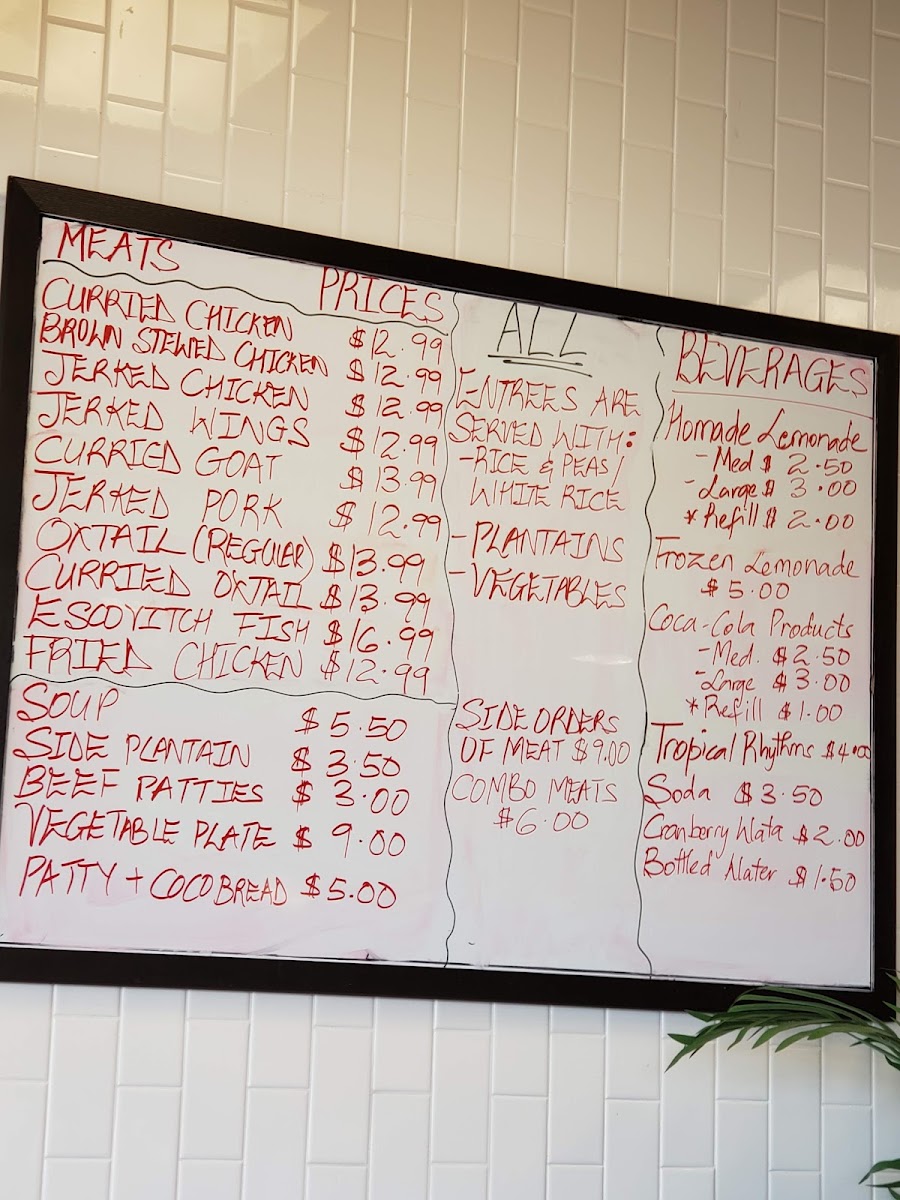 MEATS PRICES
CURRIED CHICKEN $12.99
BROWN STEWED CHICKEN $12.99
JERKED CHICKEN $12.99
JERKED WINGS $12.99
CURRIED GOAT $13.99
JERKED PORK $12.99
OXTAIL (REGULAR) $13.99
CURRIED OXTAIL $13.99
ESCOVITCH FISH $16.99
FRIED CHICKEN $12.99
SOUP $5.50
SIDE PLANTAIN $3.50
BEEF PATTIES $3.00
VEGETABLE PLATE $9.00
PATTY + COCOBREAD $5.00
ALL
ENTREES ARE
SERVED WITH:
-RICE & PEAS/
WHITE RICE
-PLANTAINS
-VEGETABLES
SIDE ORDERS
OF MEAT $9.00
COMBO MEATS
$6.00
BEVERAGES
Homade Lemonade
-Med $2.50
-Large $3.00
*Refill $2.00
Frozen Lemonade
$5.00
Coca-Cola Products
-Med. $2.50
-Large $3.00
*Refill $1.00
Tropical Rhythms $4.00
Soda $3.50
Cranberry Wata $2.00
Bottled Water $1.50